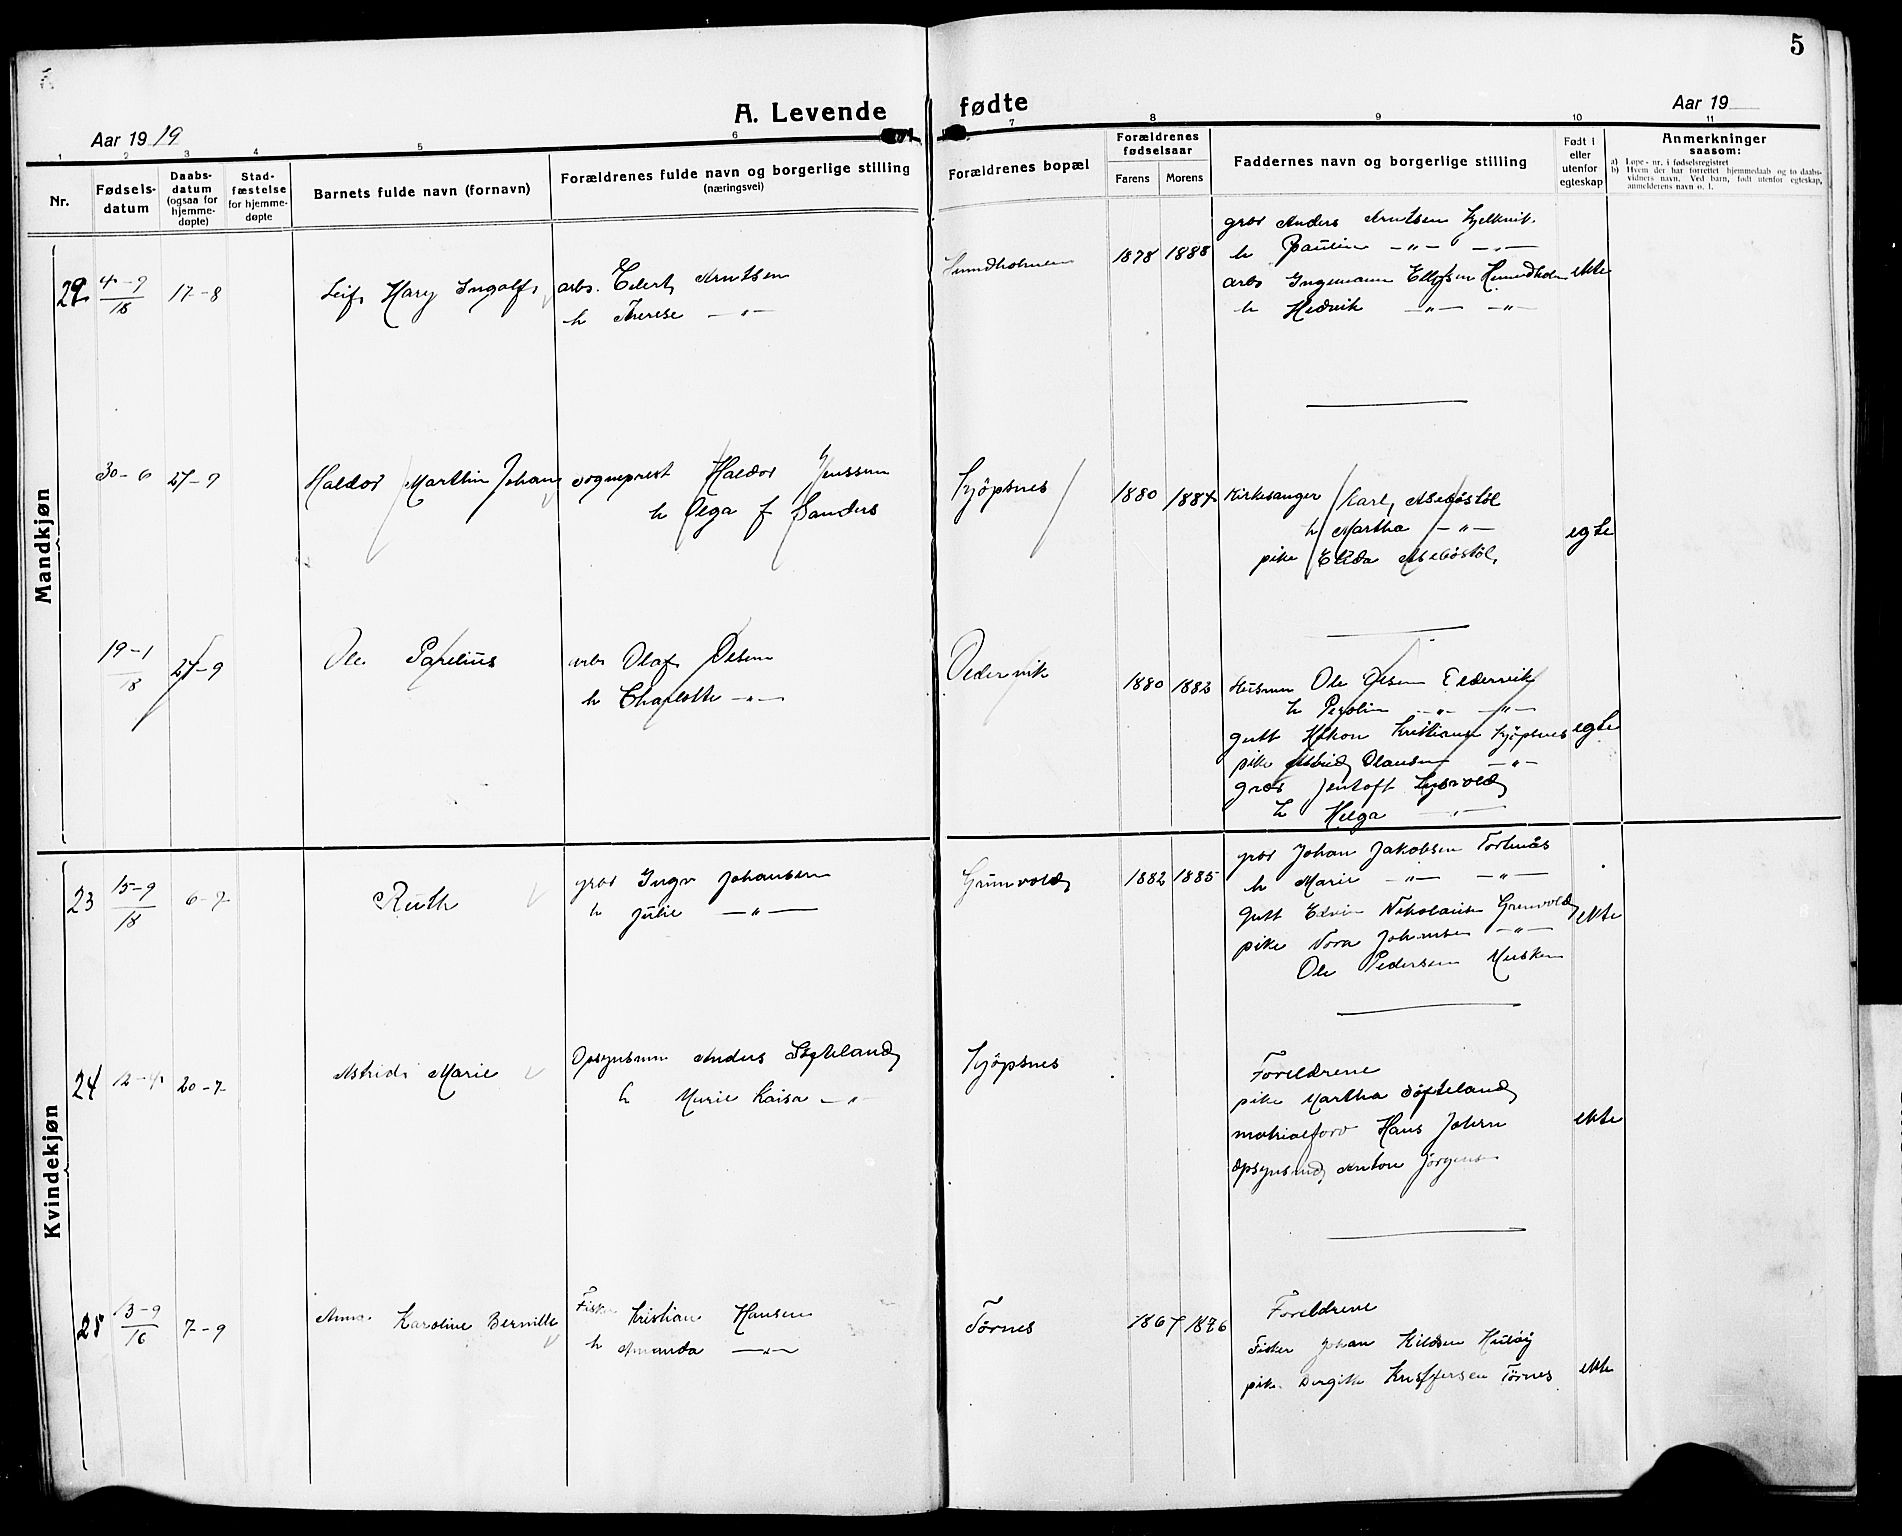 5
A. Levende fødte
Aar 1919
Aar 19
1 2 3 4 5 6 7 8 9 10 11
Nr.
Fødsels-
datum
Daabs-
datum
(ogsaa for
hjemme-
døpte)
Stad-
fæstelse
for hjemme-
døpte
Barnets fulde navn (fornavn)
Forældrenes fulde navn og borgerlige stilling
(næringsvei)
Forældrenes bopæl
Forældrenes
fødselsaar
Farens
Morens
Faddernes navn og borgerlige stilling
Født i
eller
utenfor
egteskap
Anmerkninger
saasom:
a) Løpe-nr. i fødselsregistret
b) Hvem der har forrettet hjemmedaab og to daabs-
vidners navn. Ved barn, født utenfor egteskap,
anmelderens navn o. l.
Mandkjøn
29 4-9/18 17-8 Leif Hary Ingolf
arbs. Edert Arntsen
h Therese -"-
Hundholmen 1878 1888
grbr Anders Arntsen
h Paulin -"- -"-
arbs Ingemann Ellefsen Hundholm
h Hedvik -"- -"-
ekte
30-6 27-9 Haldor Marthin Johan
sogneprest Haldor Jenssen
h Olga f Sanders
Kjöpsnes 1880 1884
Kirkesanger Karl
h Martha -"-
pike Elida
egte
19-1/18 27-9 Ole Parelius
arbs Olaf Olsen
h Charlotte -"-
1880 1882
Husmn Ole Olsen
h Perolin -"- -"-
gutt Håkon Kristiansen Kjöpsnes
pike Astrid Olausen -"-
grbr Jentoft Lysvold
h Helga -"-
egte
Kvindekjøn
23 15-9/18 6-7 Ruth
grbr Ingv Johansen
h Julie -"-
Grunvold 1882 1885
grbr Johan Jakobsen
h Marie -"- -"-
gutt Edvin Nikolaisen Grunvold
pike Nora Johansen -"-
Ole Pedersen Musken
ekte
24 12-4 20-7 Astrid Marie
Opsynsmn Anders Söfteland
h Marie Kaisa -"-
Kjöpsnes
Foreldrene
pike Martha Söfteland
matrialforv Hans Johsn
opsynsmd Anton Jörgensen
ekte
25 13-9/16 7-9 Anna Karoline Bernille
Fisker Kristian Hansen
h Amanda -"-
Törnes 1867 1876
Foreldrene
Fisker Johan Kildsen Hulöy
pike Bergitte Kristfersen Törnes
ekte